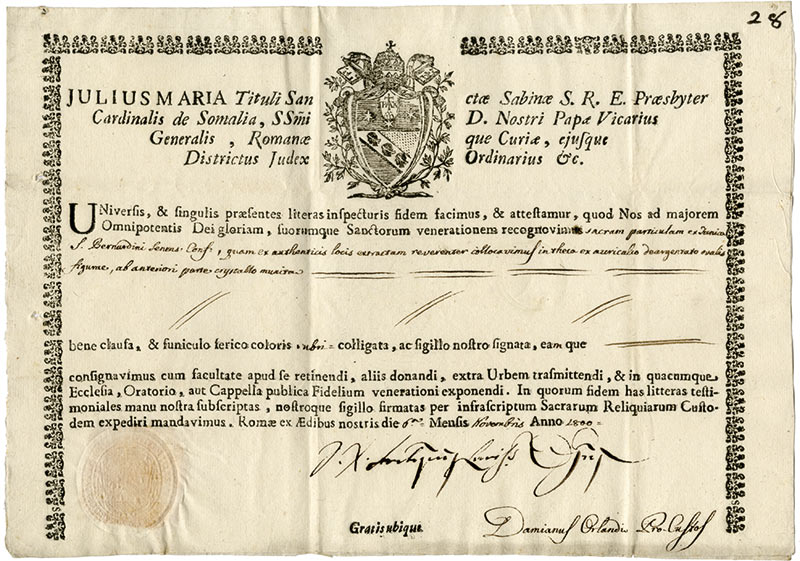 28
JULIUS MARIA Tituli Sanctæ Sabinæ S. R. E. Præsbyter
Cardinalis de Somalia, SSmi D. Nostri Papæ Vicarius
Generalis, Romanæque Curiæ, ejusque
Districtus Judex Ordinarius &c.
UNiversis, & singulis præsentes literas inspecturis fidem facimus, & attestamur, quod Nos ad majorem
Omnipotentis Dei gloriam, suorumque Sanctorum venerationem recognovimus sacram particulam ex Tunica
S. Bernardini Senens. Conf., quam ex authenticis locis extractam reverenter collocavimus in theca ex auricalco deargentato ovalis
figuræ, ab anteriori parte crystallo munita
bene clausa, & funiculo serico coloris rubri colligata, ac sigillo nostro signata, eamque
consignavimus cum facultate apud se retinendi, aliis donandi, extra Urbem trasmittendi, & in quacumque
Ecclesia, Oratorio, aut Cappella publica Fidelium venerationi exponendi. In quorum fidem has litteras testi-
moniales manu nostra subscriptas, nostroque sigillo firmatas per infrascriptum Sacrarum Reliquiarum Custo-
dem expediri mandavimus. Romæ ex Ædibus nostris die 6 Mensis Novembris Anno 1800
Gratis ubique. Damianus Orlandio Pro-Custos